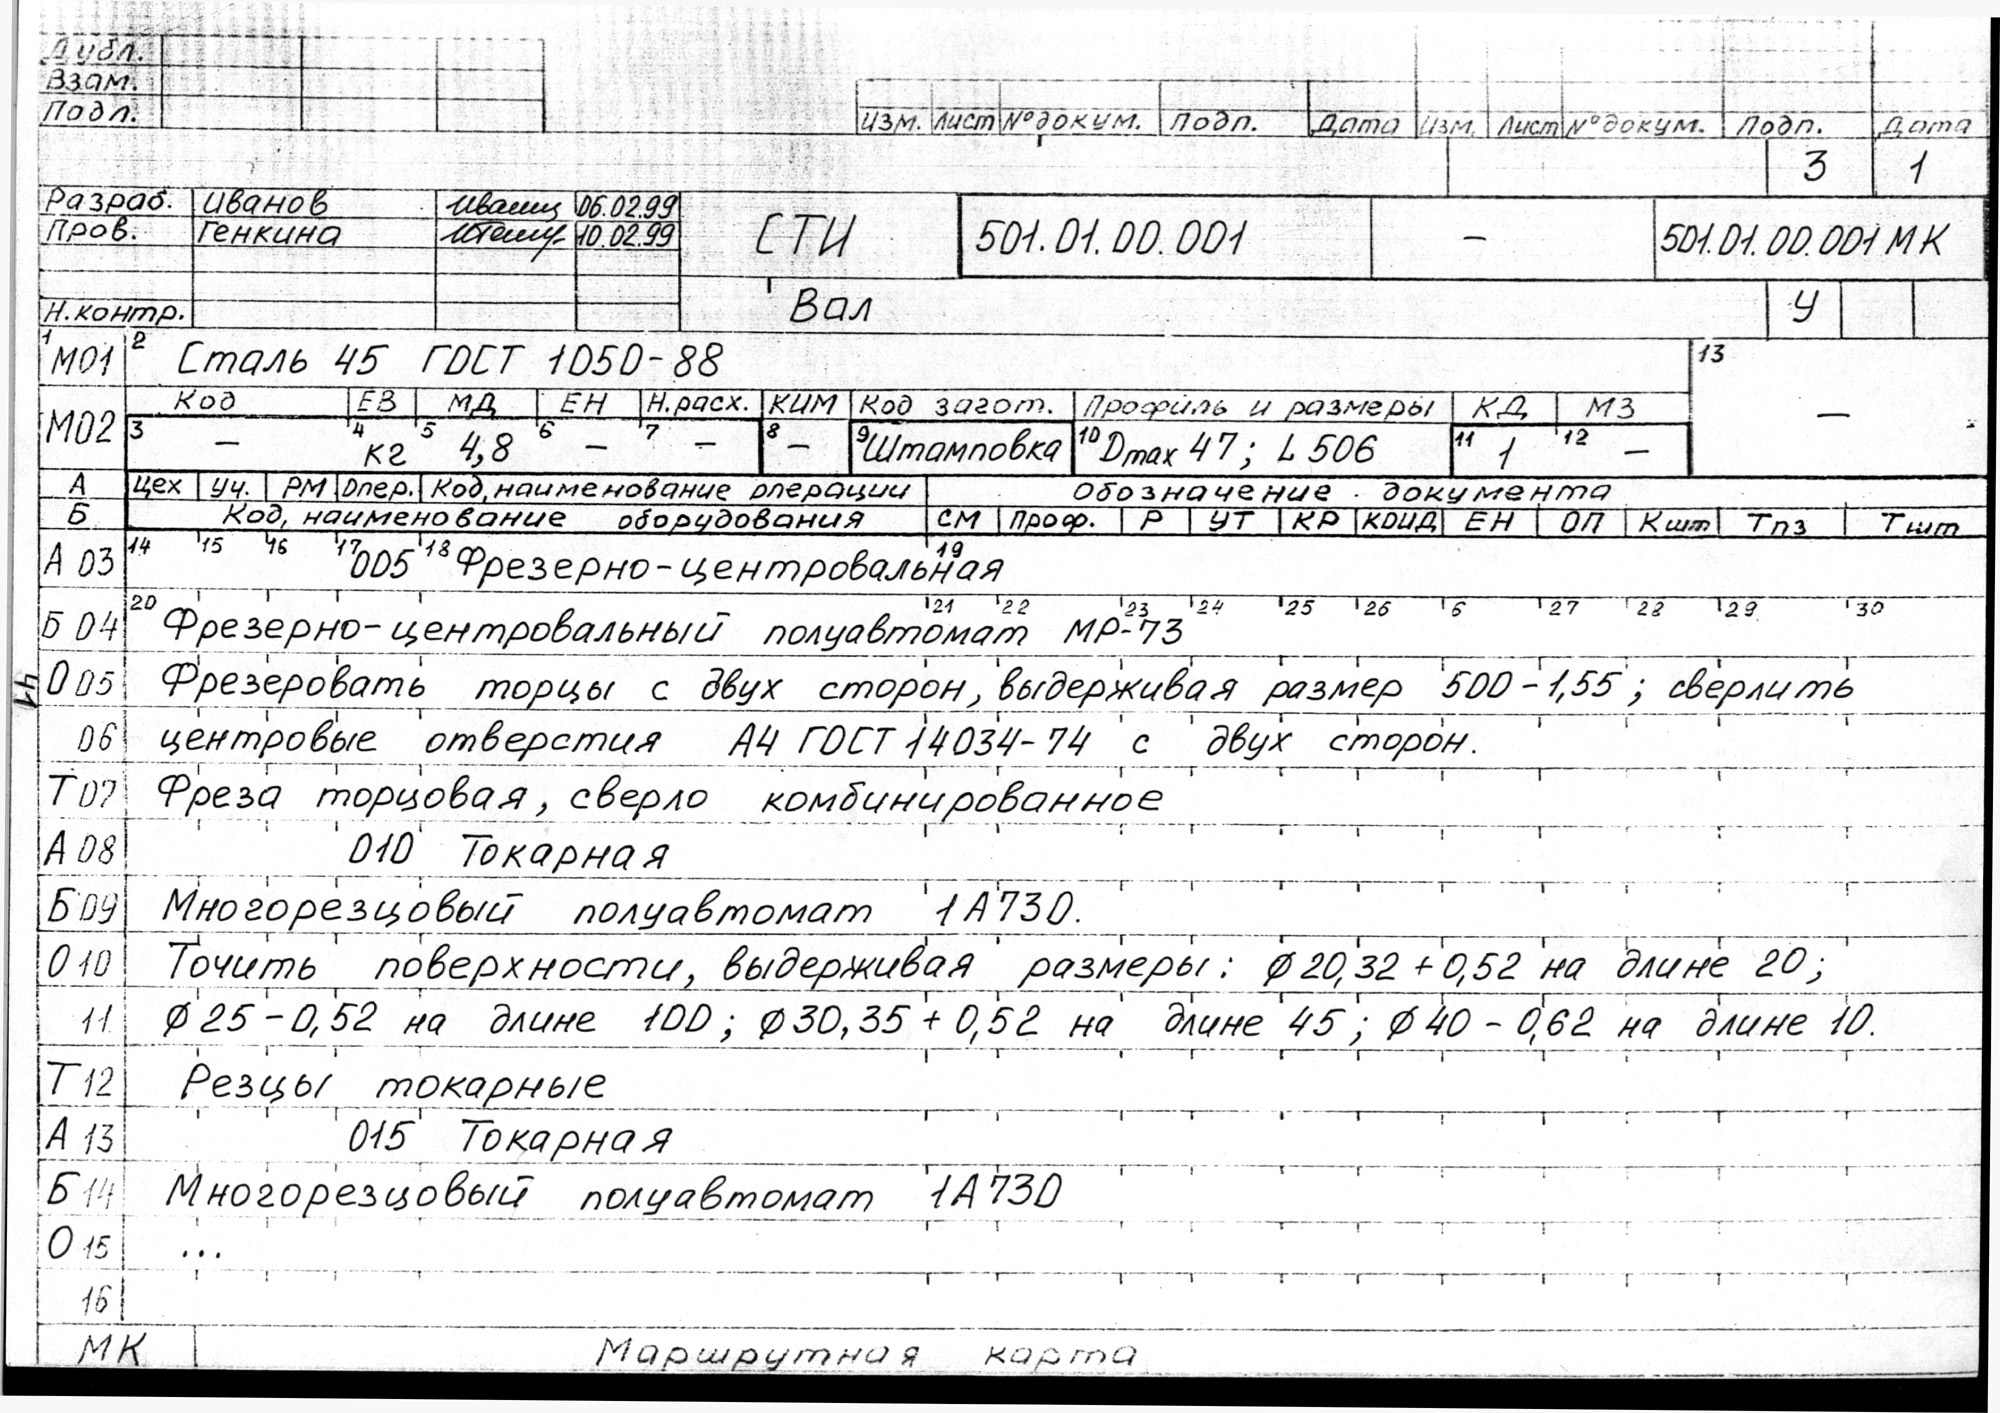 Дубл.
Взам.
Подл.
Изм. Лист № докум. Подп. Дата Изм. Лист № докум. Подп. Дата
3 1
Разраб. Иванов 06.02.99
Пров. Генкина 10.02.99
СТИ 501.01.00.001 – 501.01.00.001 МК
Н.контр. Вал У
1 М01 2 Сталь 45 ГОСТ 1050-88 13
М02 Код ЕВ МД ЕН Н.расх. КИМ Код загот. Профиль и размеры КД МЗ –
3 – 4 кг 5 4,8 6 – 7 – 8 – 9 Штамповка 10 Dmax 47; L 506 11 1 12 –
А Цех Уч. РМ Опер. Код, наименование операции Обозначение документа
Б Код, наименование оборудования СМ Проф. Р УТ КР КОИД ЕН ОП Кшт Тпз Тшт
А 03 14 15 16 17 005 18 Фрезерно-центровальная 19
Б 04 20 Фрезерно-центровальный полуавтомат МР-73 21 22 23 24 25 26 6 27 28 29 30
О 05 Фрезеровать торцы с двух сторон, выдерживая размер 500-1,55; сверлить
06 центровые отверстия А4 ГОСТ 14034-74 с двух сторон.
Т 07 Фреза торцовая, сверло комбинированное
А 08 010 Токарная
Б 09 Многорезцовый полуавтомат 1А730.
О 10 Точить поверхности, выдерживая размеры: ø20,32+0,52 на длине 20;
11 ø25-0,52 на длине 100; ø30,35+0,52 на длине 45; ø40-0,62 на длине 10.
Т 12 Резцы токарные
А 13 015 Токарная
Б 14 Многорезцовый полуавтомат 1А730
О 15 ...
16
МК Маршрутная карта
41